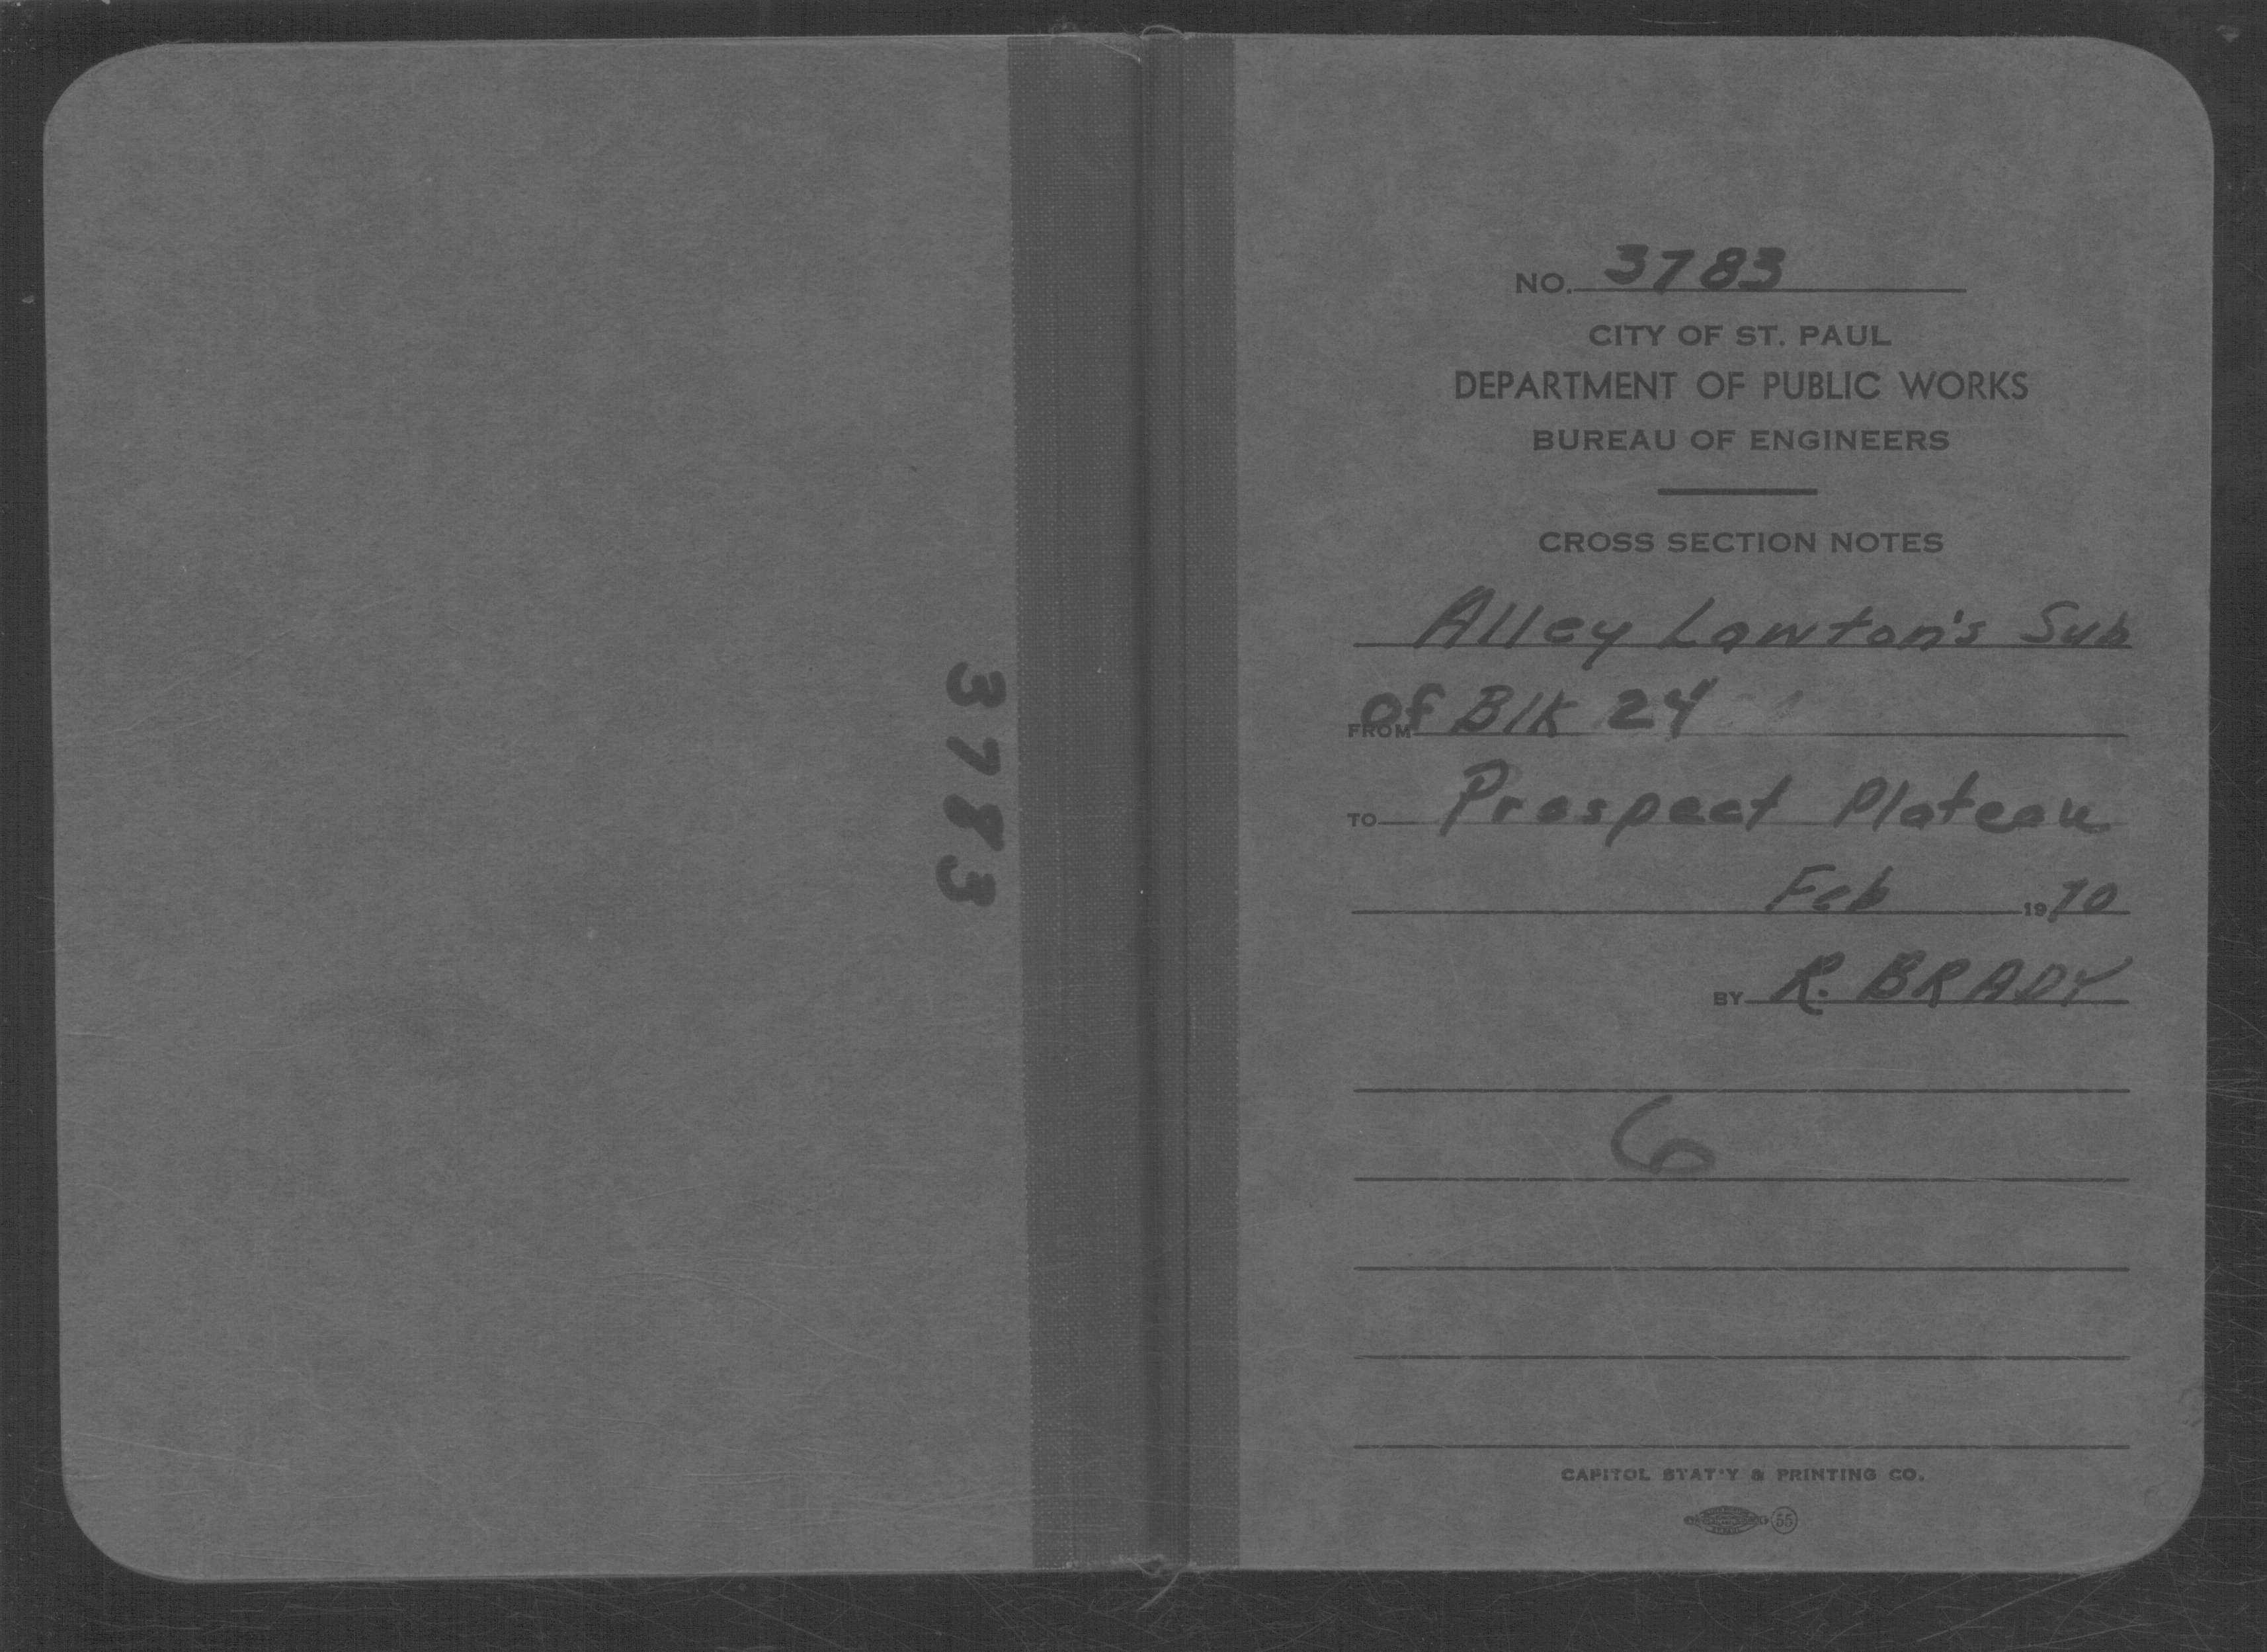 3783
NO. 3783
CITY OF ST. PAUL
DEPARTMENT OF PUBLIC WORKS
BUREAU OF ENGINEERS
CROSS SECTION NOTES
Alley Lawton's Sub
FROM of Blk 24
TO Prospect Plateau
Feb 1970
BY R. BRADY
6
CAPITOL STAT'Y & PRINTING CO.
55